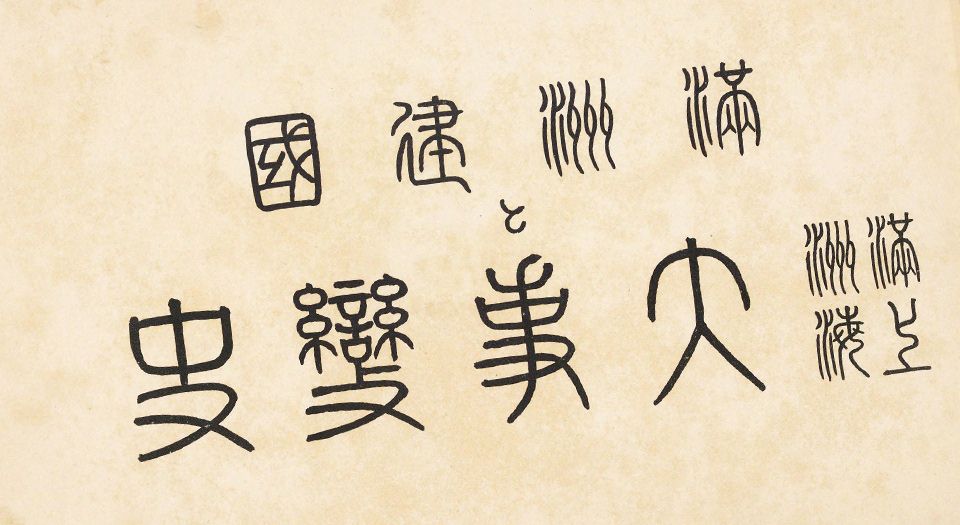 滿洲建國
と
滿洲
上海
大事變史